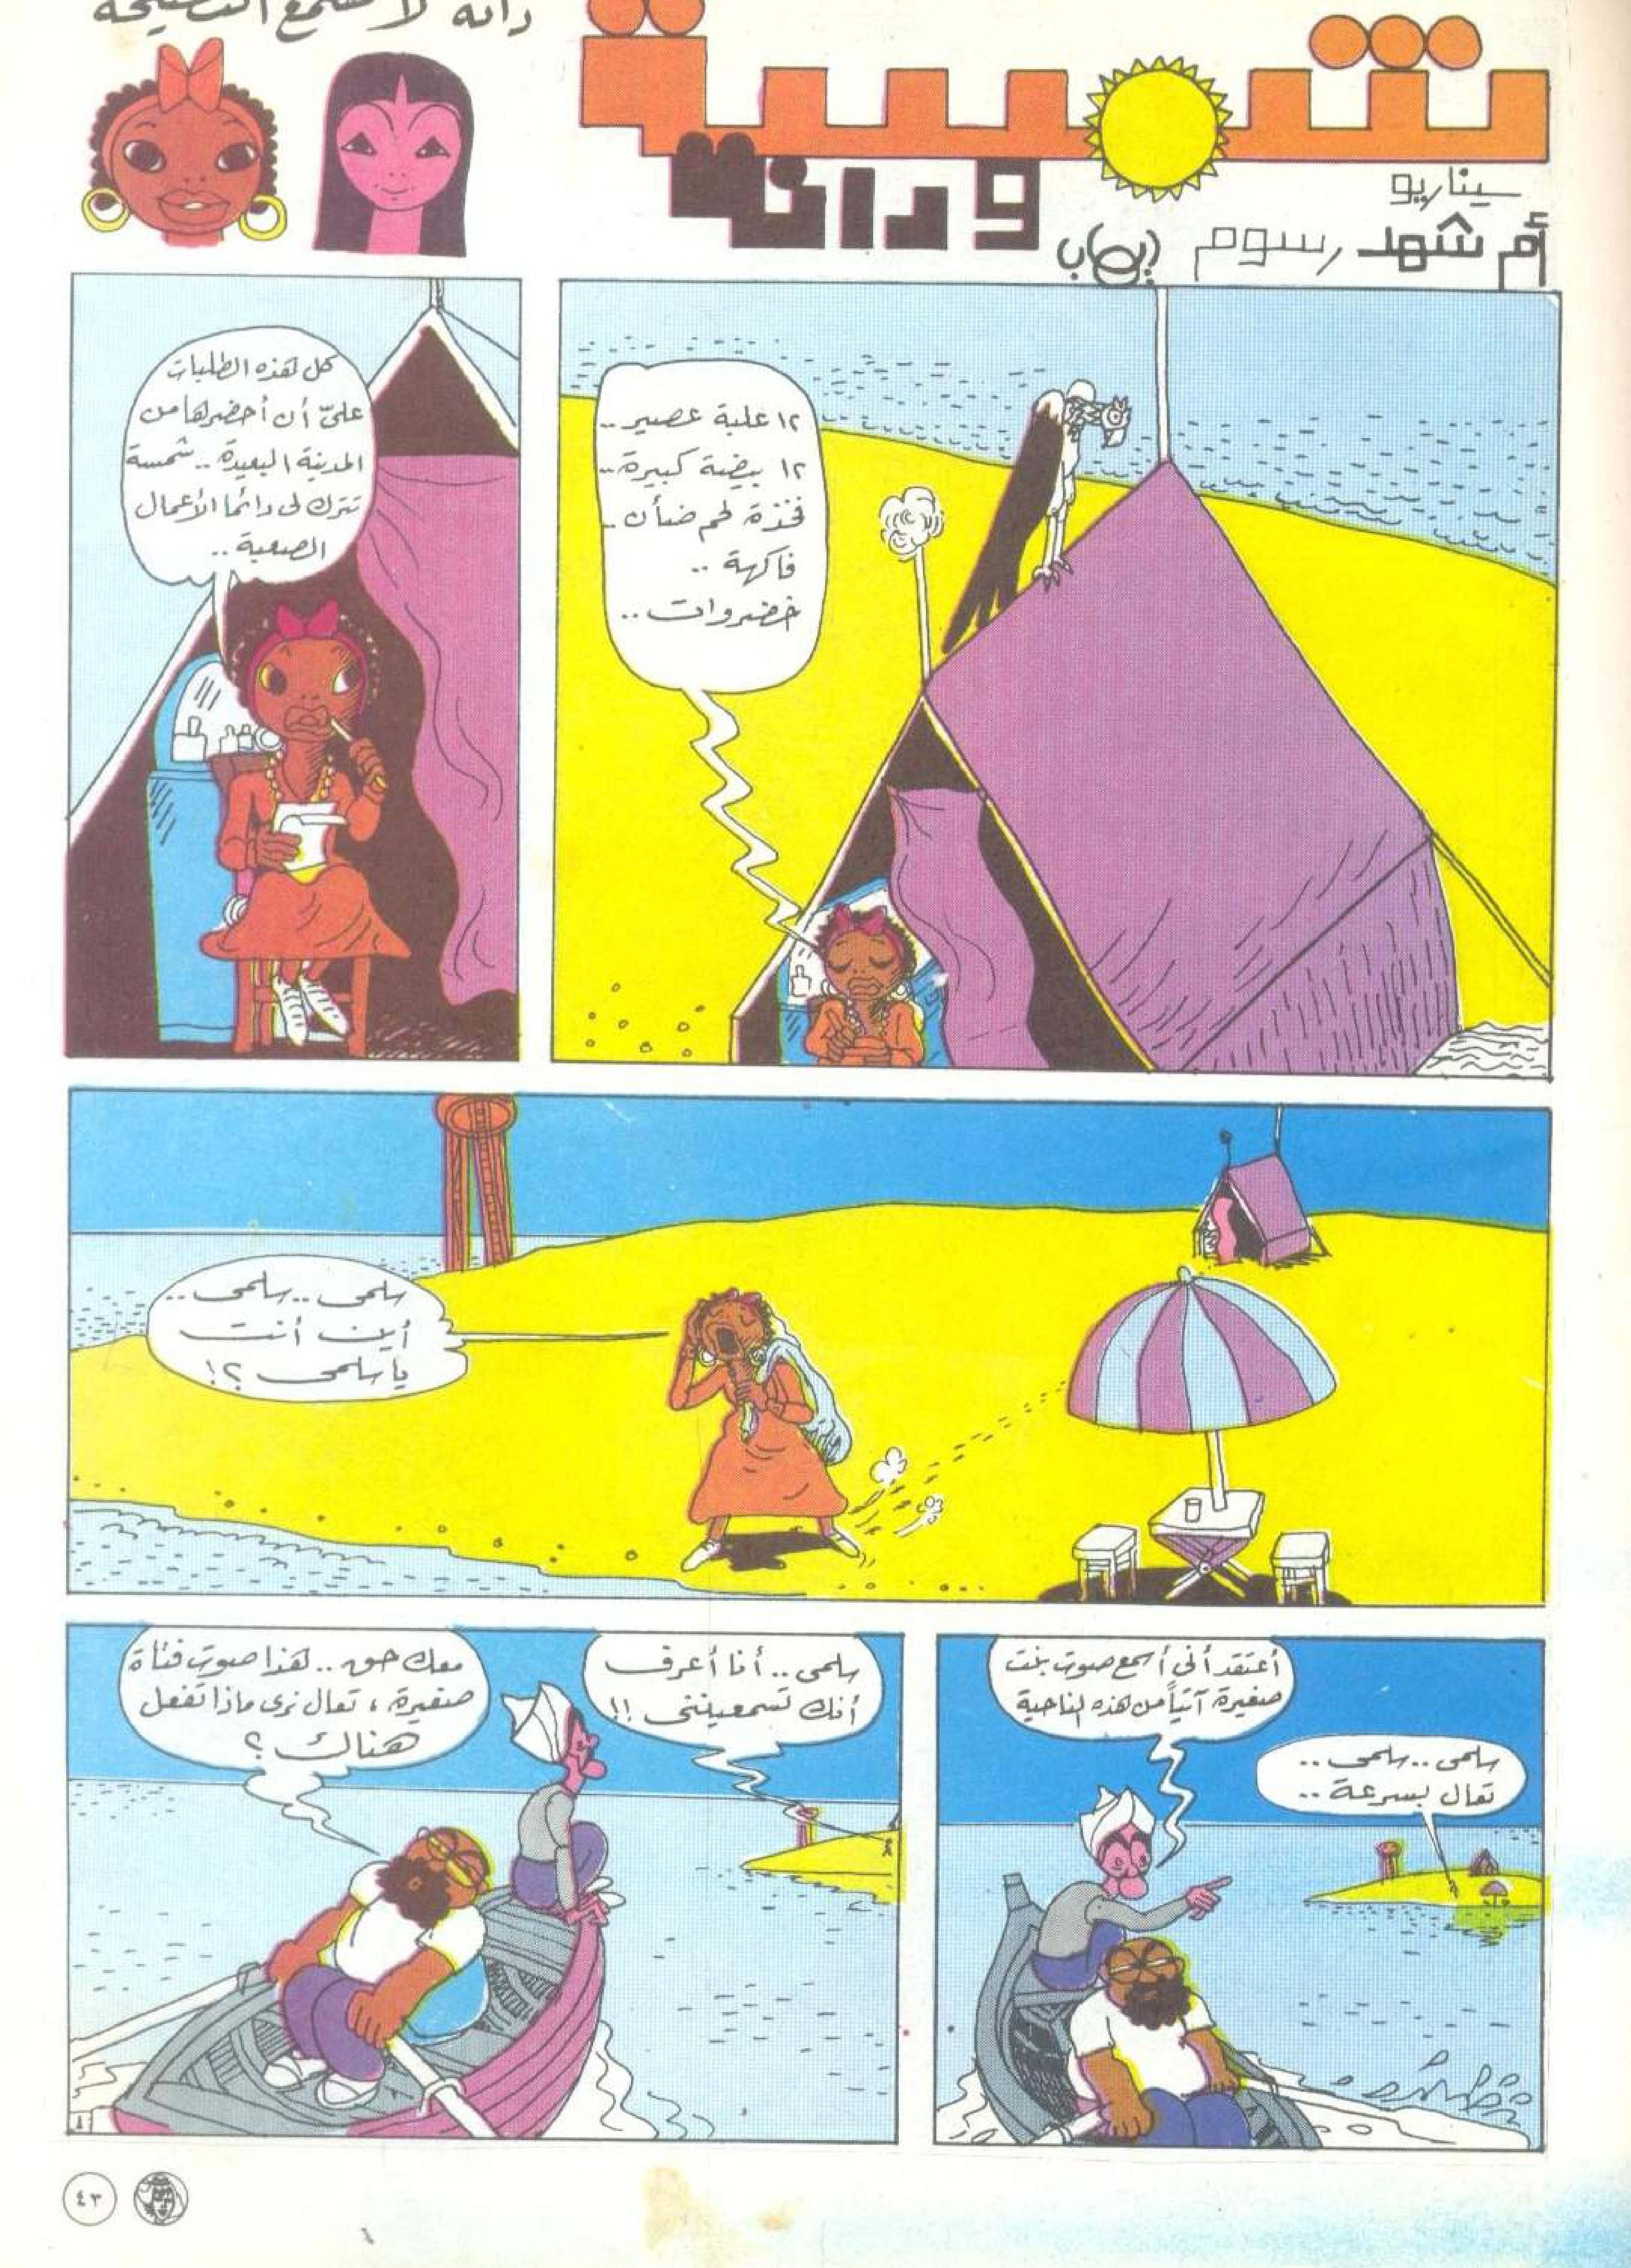 دانة لا تسمع النصيحة
شمسة
ودانة
سيناريو
أم شهد رسوم
١٢ علبة عصير ..
١٢ بيضة كبيرة ..
فخذة لحم ضأن ..
فاكهة ..
خضروات ..
كل هذه الطلبات
علىّ أن أحضرها من
المدينة البعيدة .. شمسة
تترك لى دائما الأعمال
الصعبة ..
سلمى .. سلمى ..
أين أنت
يا سلمى ؟!
أعتقد أنى أسمع صوت بنت
صغيرة آتياً من هذه الناحية
سلمى .. سلمى ..
تعال بسرعة ..
سلمى .. أنا أعرف
أنك تسمعيننى !!
معك حق .. هذا صوت فتاة
صغيرة ، تعال نرى ماذا تفعل
هناك ؟
٤٣